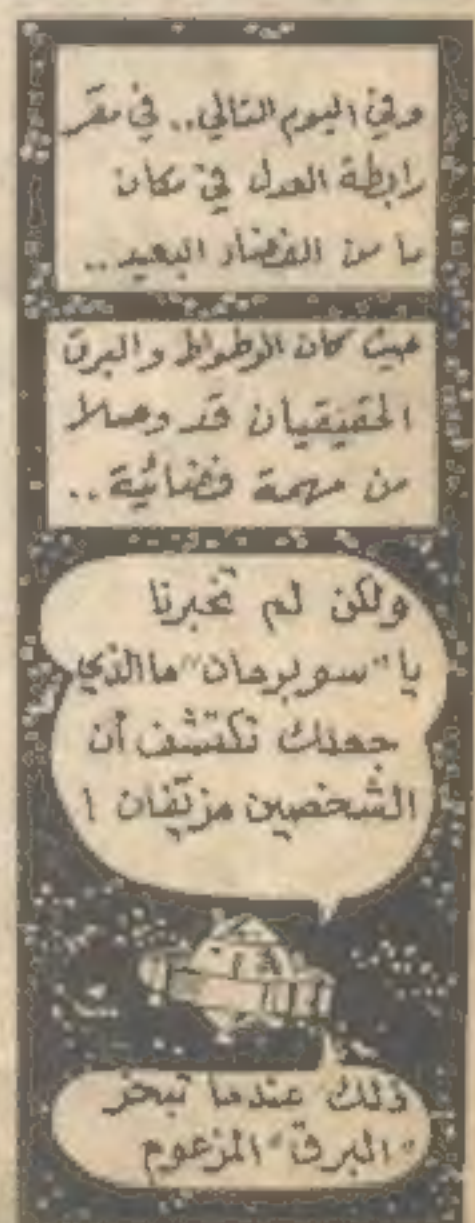 وفي اليوم التالي.. في مقر
رابطة العدل في مكان
ما من الفضاء البعيد..
حيث كان الوطواط والبرق
الحقيقيان قد وصلا
من مهمة فضائية..
ولكن لم تخبرنا
يا "سوبرمان" ما الذي
جعلك تكتشف أن
الشخصين مزيّفان !
ذلك عندما تبخر
"البرق" المزعوم